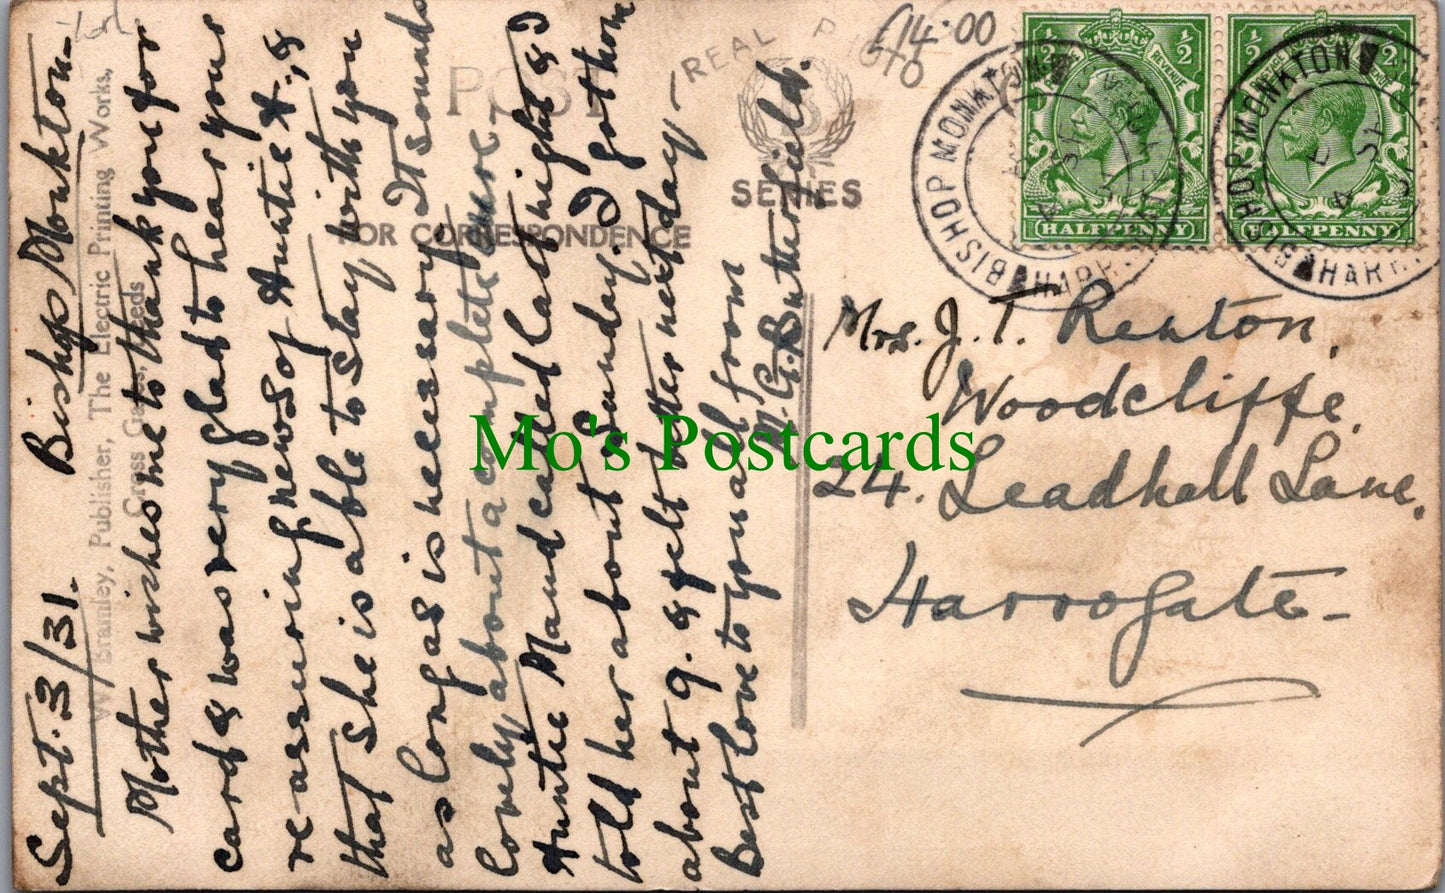 Sept. 3/31. Bishop Monkton.
Mother wishes me to thank you for
card & was very glad to hear your
reassuring news of Auntie A., &
that she is able to stay with you
as long as is necessary. It sounds
lovely about a complete cure,
Auntie Maud called last night & I
told her about Sunday. I got home
about 9. & felt better next day —
Best love to you all from
M. G. Butterfield.
W. Bramley, Publisher, The Electric Printing Works,
Cross Gates, Leeds
POST
REAL PHOTO
B
SERIES
FOR CORRESPONDENCE
£14.00
½ ½
REVENUE
HALFPENNY
½ ½
POSTAGE REVENUE
HALFPENNY
BISHOP MONKTON
HARR
4 SP
31
BISHOP MONKTON
HARR
4 SP
31
Mrs. J. T. Renton,
Woodcliffe,
24. Leadhall Lane,
Harrogate —
Mo's Postcards